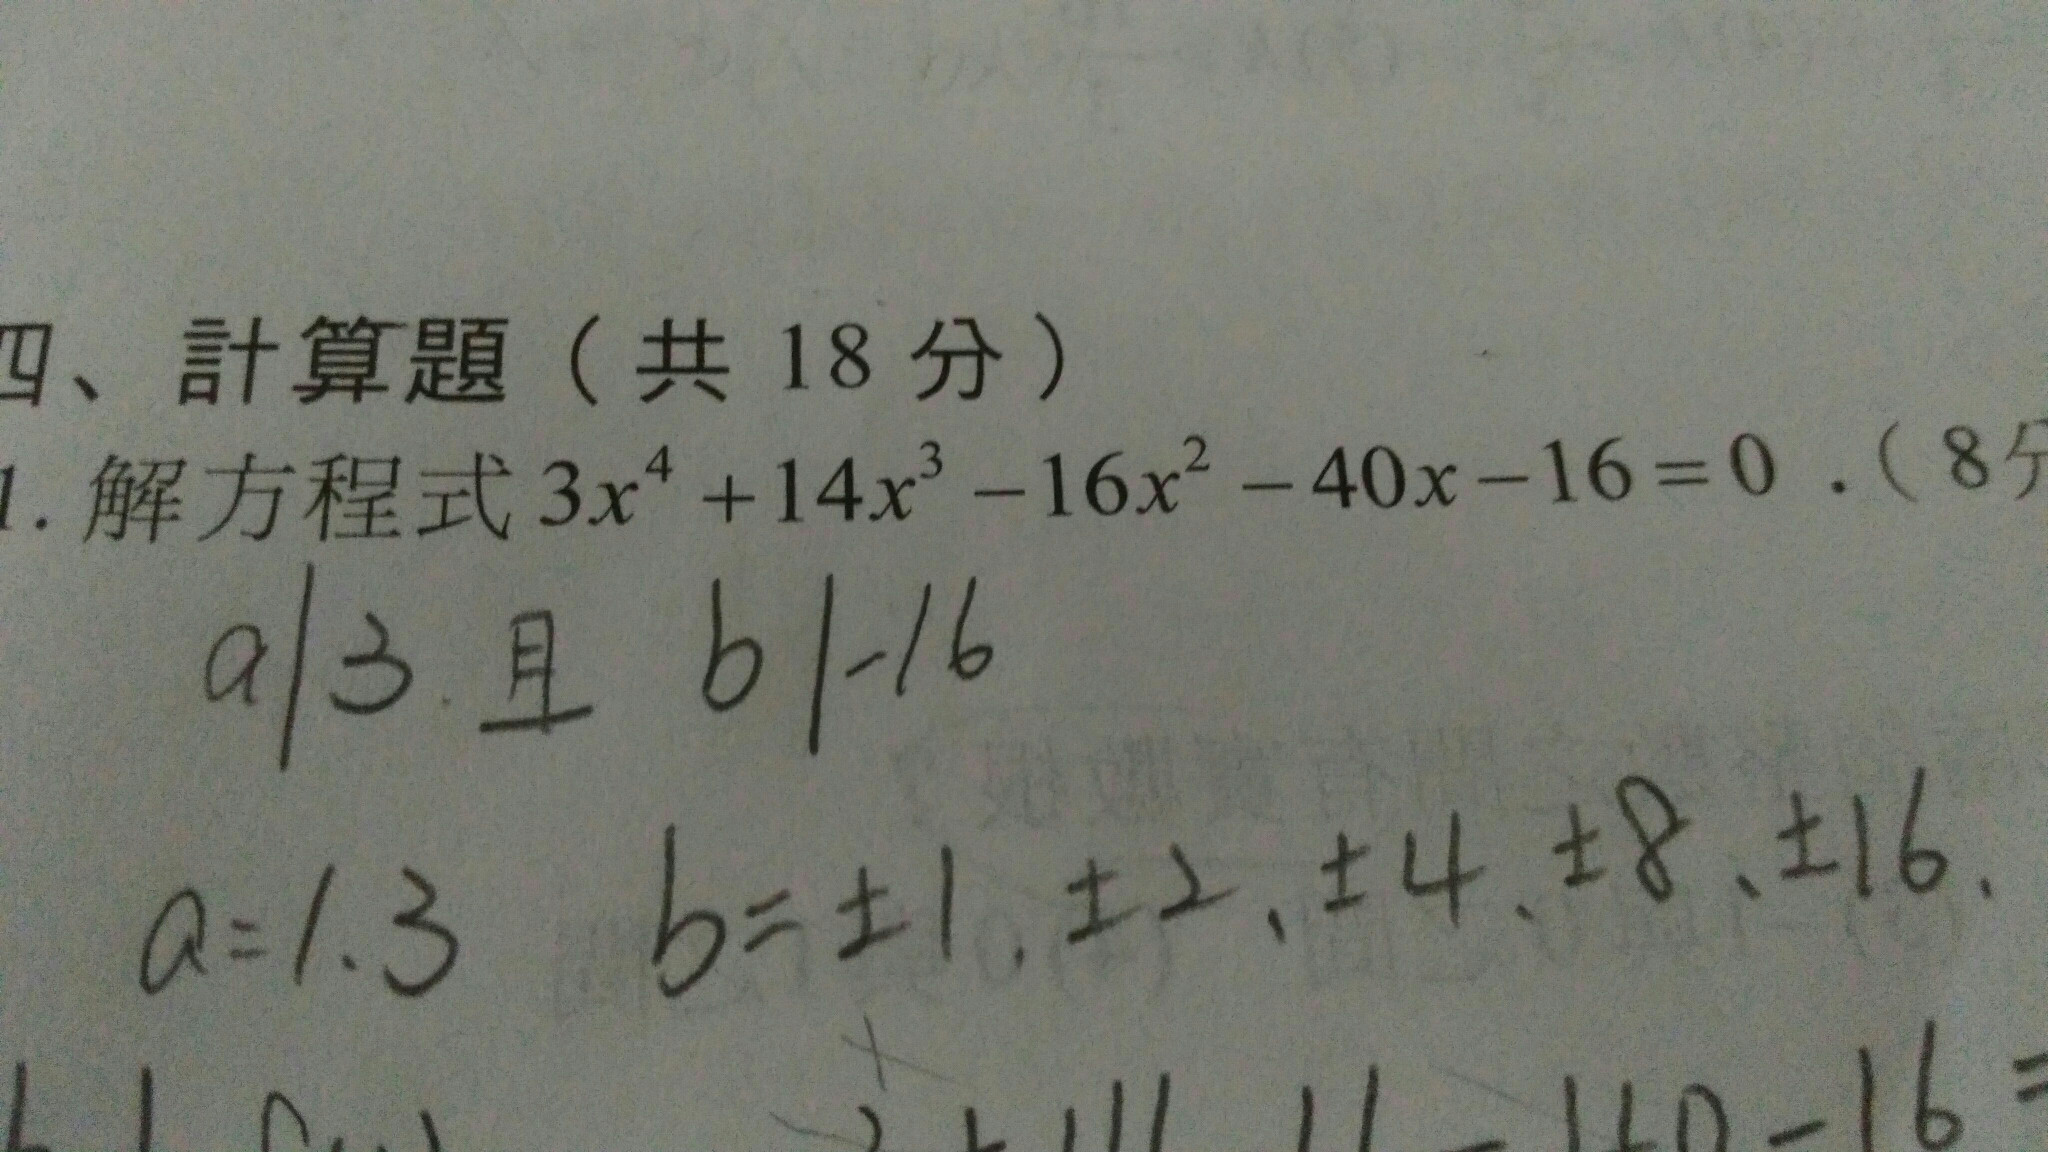 四、計算題（共 18 分）
1. 解方程式 3x⁴ + 14x³ − 16x² − 40x − 16 = 0 .（8分
a|3 且 b|-16
a=1.3 b=±1、±2、±4、±8、±16、
-40-16=